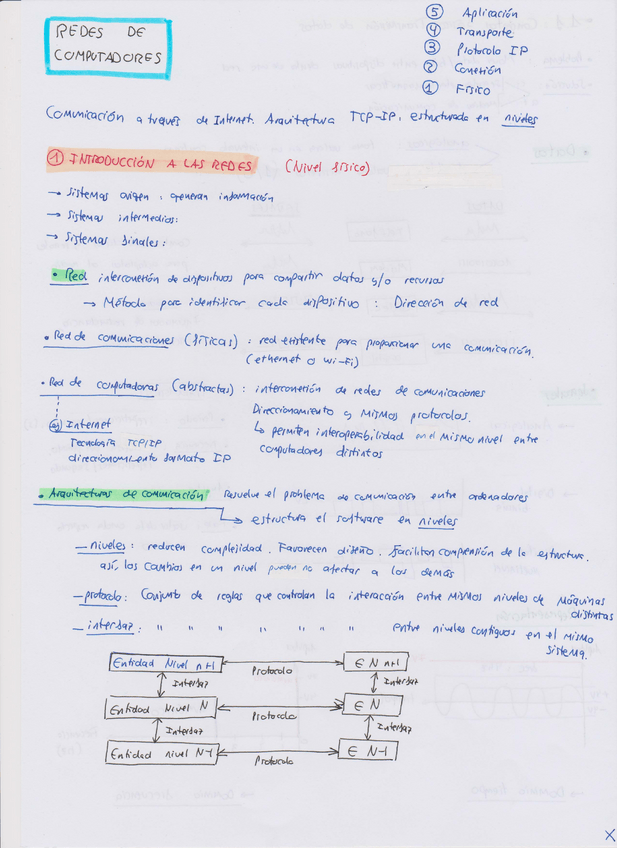 REDES DE
COMPUTADORES
⑤ Aplicación
④ Transporte
③ Protocolo IP
② Conexión
① Físico
Comunicación a través de Internet. Arquitectura TCP-IP, estructurada en niveles
① INTRODUCCIÓN A LAS REDES (Nivel físico)
→ Sistemas origen: generan información
→ Sistemas intermedios:
→ Sistemas finales:
• Red interconexión de dispositivos para compartir datos y/o recursos
→ Método para identificar cada dispositivo: Dirección de red
• Red de comunicaciones (físicas): red existente para proporcionar una comunicación.
(ethernet o wi-fi)
• Red de computadoras (abstractas): interconexión de redes de comunicaciones
Direccionamiento y mismos protocolos.
↳ permiten interoperabilidad en el mismo nivel entre
computadores distintos
ej Internet
Tecnología TCP/IP
direccionamiento formato IP
• Arquitecturas de comunicación Resuelve el problema de comunicación entre ordenadores
→ estructura el software en niveles
— niveles: reducen complejidad. Favorecen diseño. Facilitan comprensión de la estructura.
así, los cambios en un nivel pueden no afectar a los demás
— protocolo: Conjunto de reglas que controlan la interacción entre mismos niveles de máquinas
distintas
— interfaz: " " " " " " entre niveles contiguos en el mismo
sistema.
Entidad Nivel n+1 Protocolo E N n+1
Interfaz Interfaz
Entidad Nivel N Protocolo E N
Interfaz Interfaz
Entidad nivel N-1 Protocolo E N-1
X